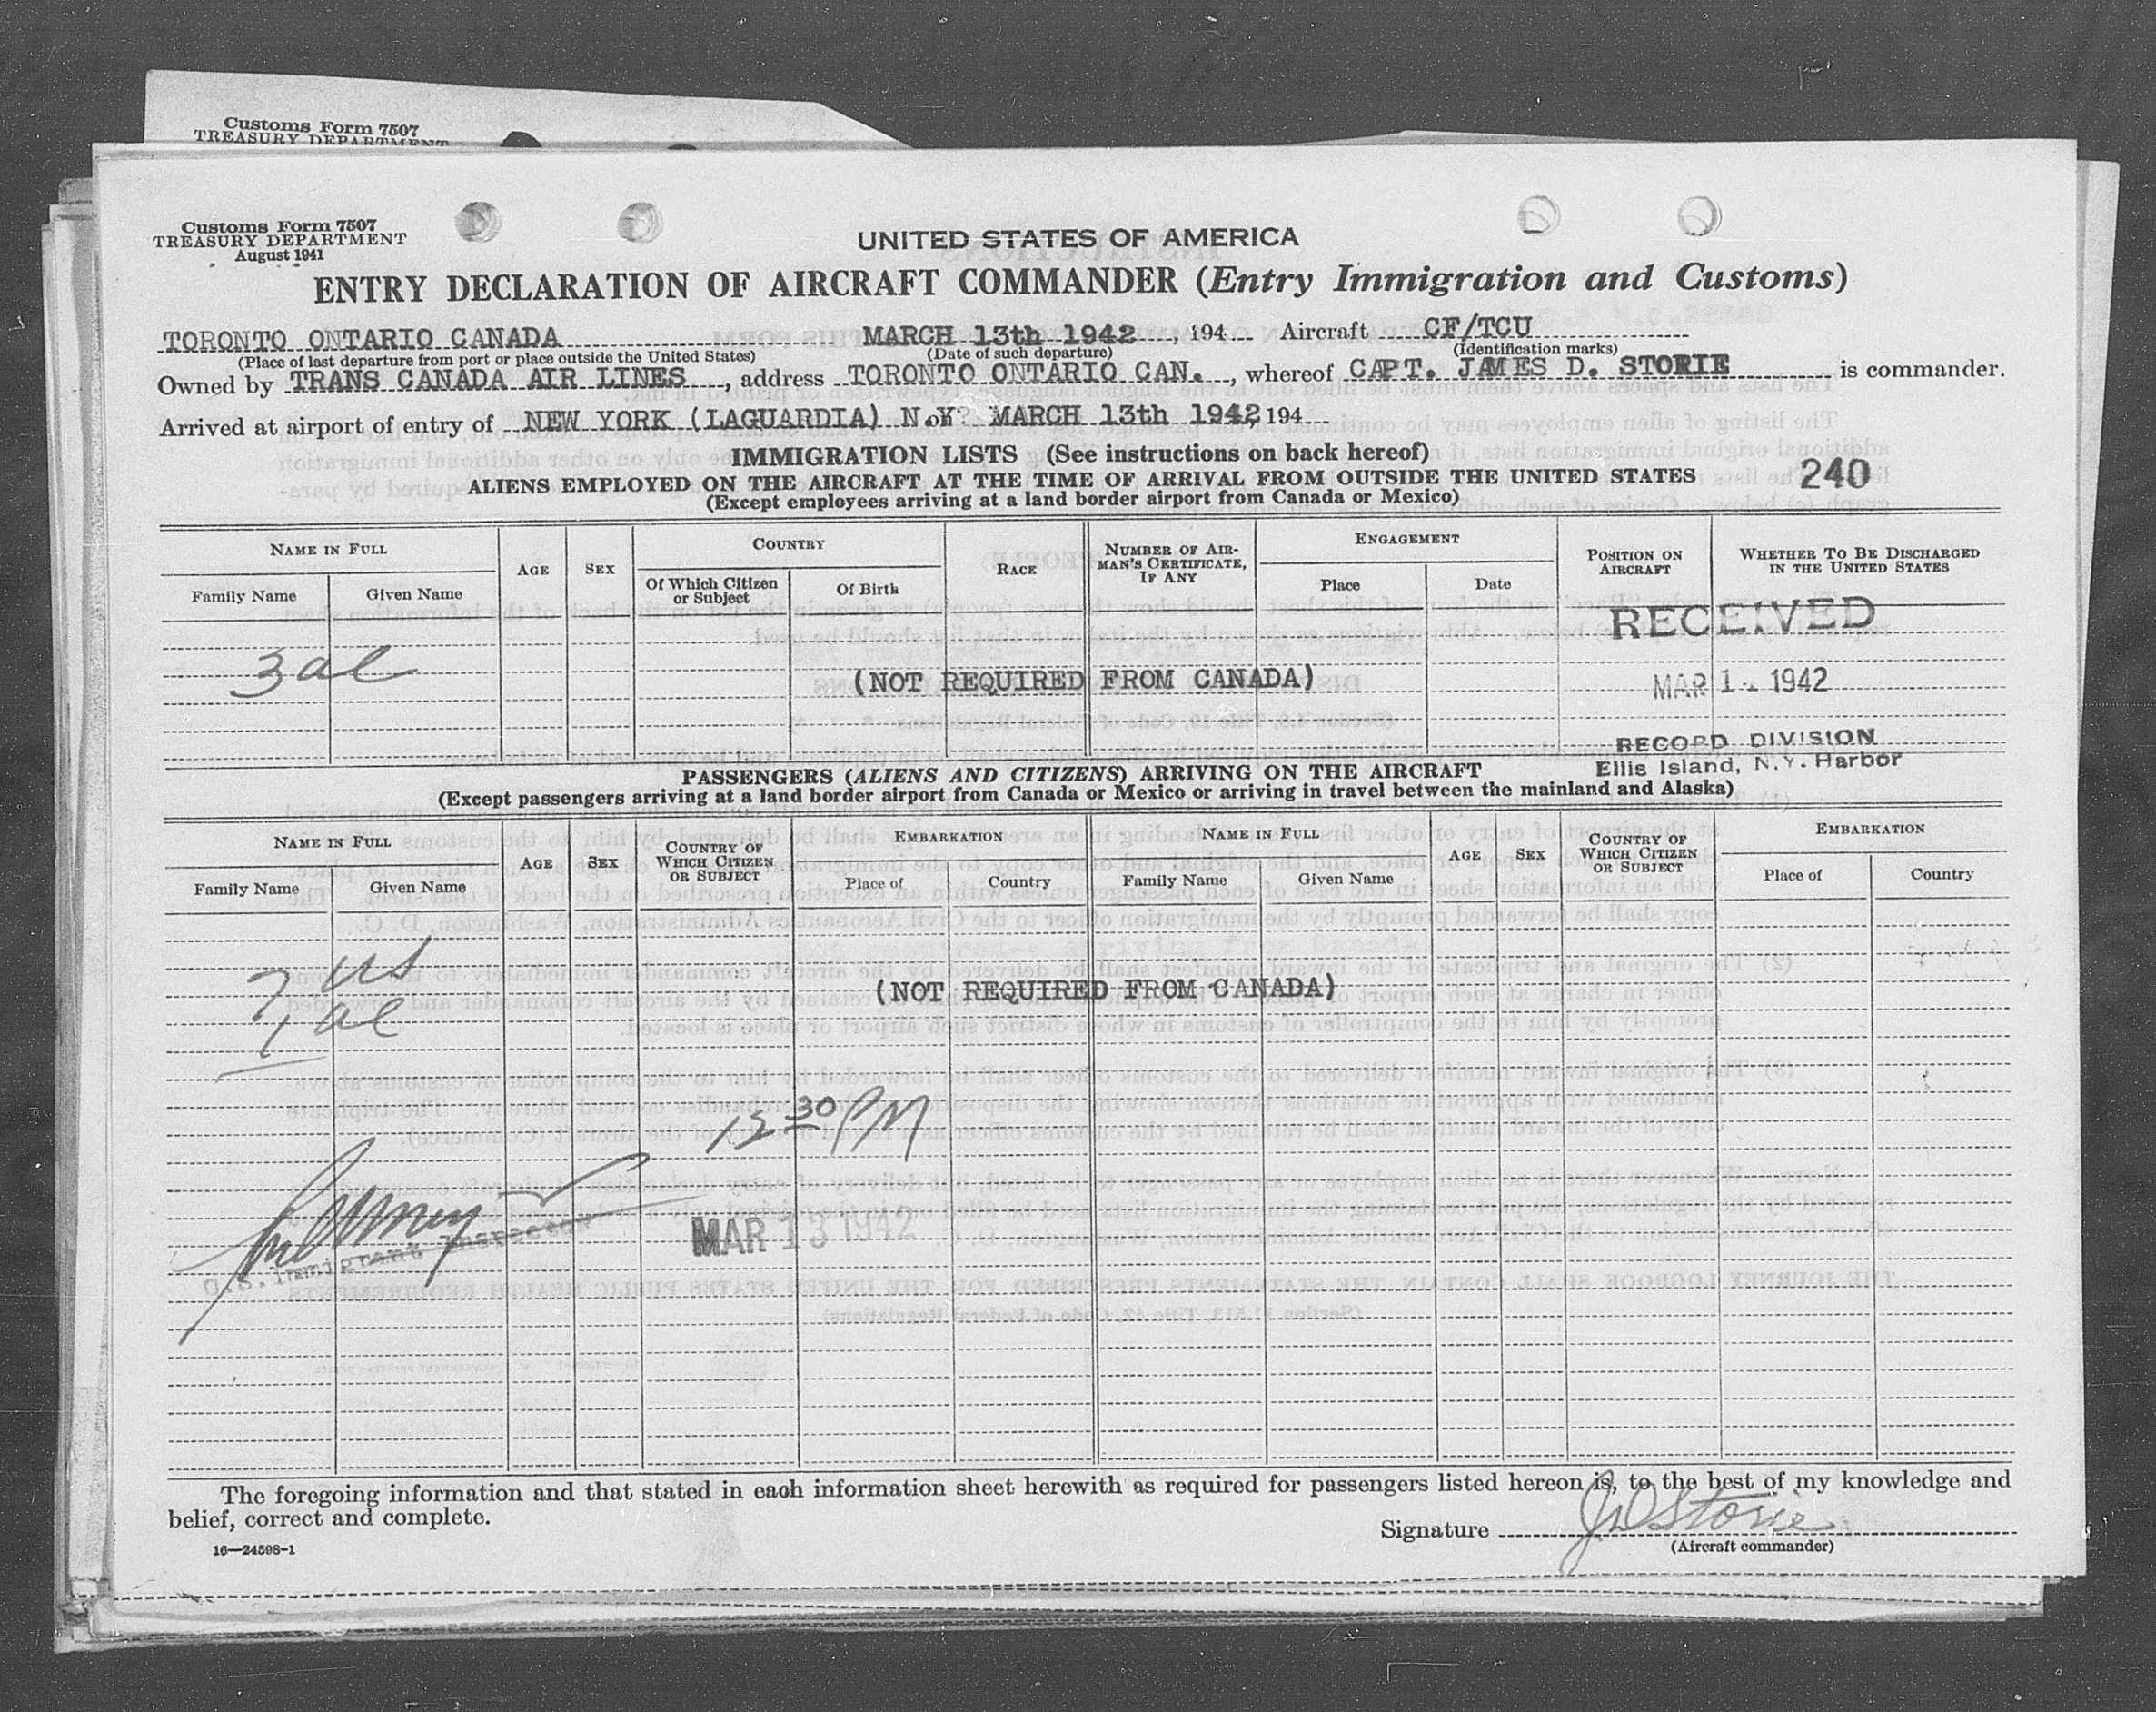 Customs Form 7507
TREASURY DEPARTMENT
Customs Form 7507
TREASURY DEPARTMENT
August 1941
UNITED STATES OF AMERICA
ENTRY DECLARATION OF AIRCRAFT COMMANDER (Entry Immigration and Customs)
TORONTO ONTARIO CANADA MARCH 13th 1942, 194 Aircraft CF/TCU
(Place of last departure from port or place outside the United States) (Date of such departure) (Identification marks)
Owned by TRANS CANADA AIR LINES, address TORONTO ONTARIO CAN., whereof CAPT. JAMES D. STORIE is commander.
Arrived at airport of entry of NEW YORK (LAGUARDIA) N.Y? MARCH 13th 1942, 194
IMMIGRATION LISTS (See instructions on back hereof)
ALIENS EMPLOYED ON THE AIRCRAFT AT THE TIME OF ARRIVAL FROM OUTSIDE THE UNITED STATES 240
(Except employees arriving at a land border airport from Canada or Mexico)
NAME IN FULL AGE SEX COUNTRY RACE NUMBER OF AIRMAN'S CERTIFICATE, IF ANY ENGAGEMENT POSITION ON AIRCRAFT WHETHER TO BE DISCHARGED IN THE UNITED STATES
Family Name Given Name Of Which Citizen or Subject Of Birth Place Date
RECEIVED
3 al (NOT REQUIRED FROM CANADA) MAR 1 1942
RECORD DIVISION
Ellis Island, N.Y. Harbor
PASSENGERS (ALIENS AND CITIZENS) ARRIVING ON THE AIRCRAFT
(Except passengers arriving at a land border airport from Canada or Mexico or arriving in travel between the mainland and Alaska)
NAME IN FULL AGE SEX COUNTRY OF WHICH CITIZEN OR SUBJECT EMBARKATION NAME IN FULL AGE SEX COUNTRY OF WHICH CITIZEN OR SUBJECT EMBARKATION
Family Name Given Name Place of Country Family Name Given Name Place of Country
7 us
7 al
(NOT REQUIRED FROM CANADA)
12 30 PM
MAR 13 1942
U.S. Immigrant Inspector
The foregoing information and that stated in each information sheet herewith as required for passengers listed hereon is, to the best of my knowledge and
belief, correct and complete.
Signature JDStorie
(Aircraft commander)
16—24598-1